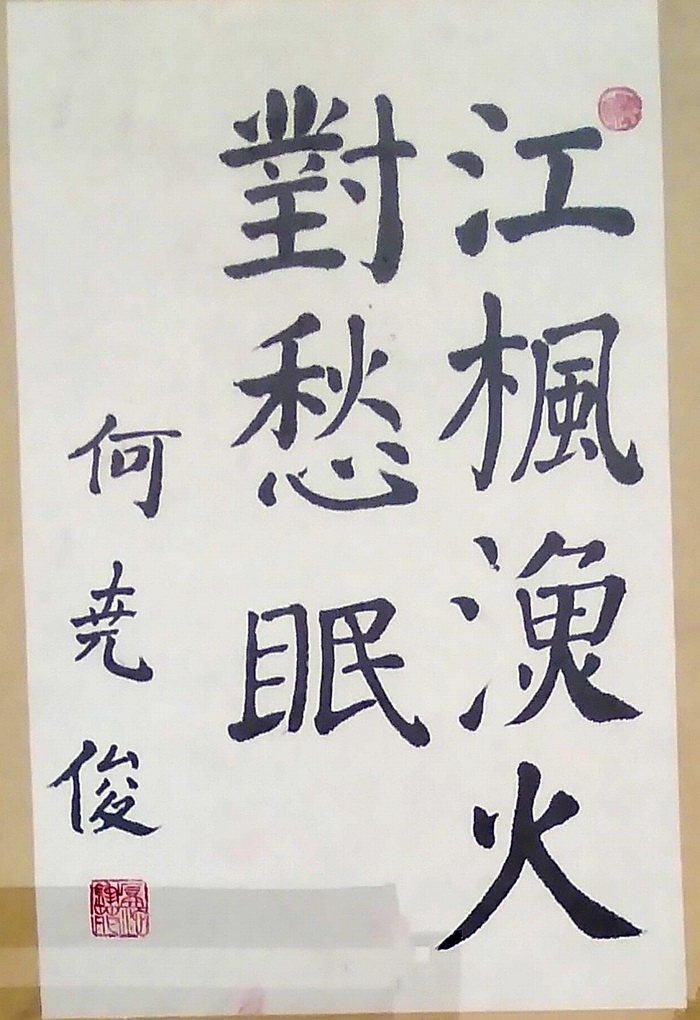 江楓漁火
對愁眠
何尭俊